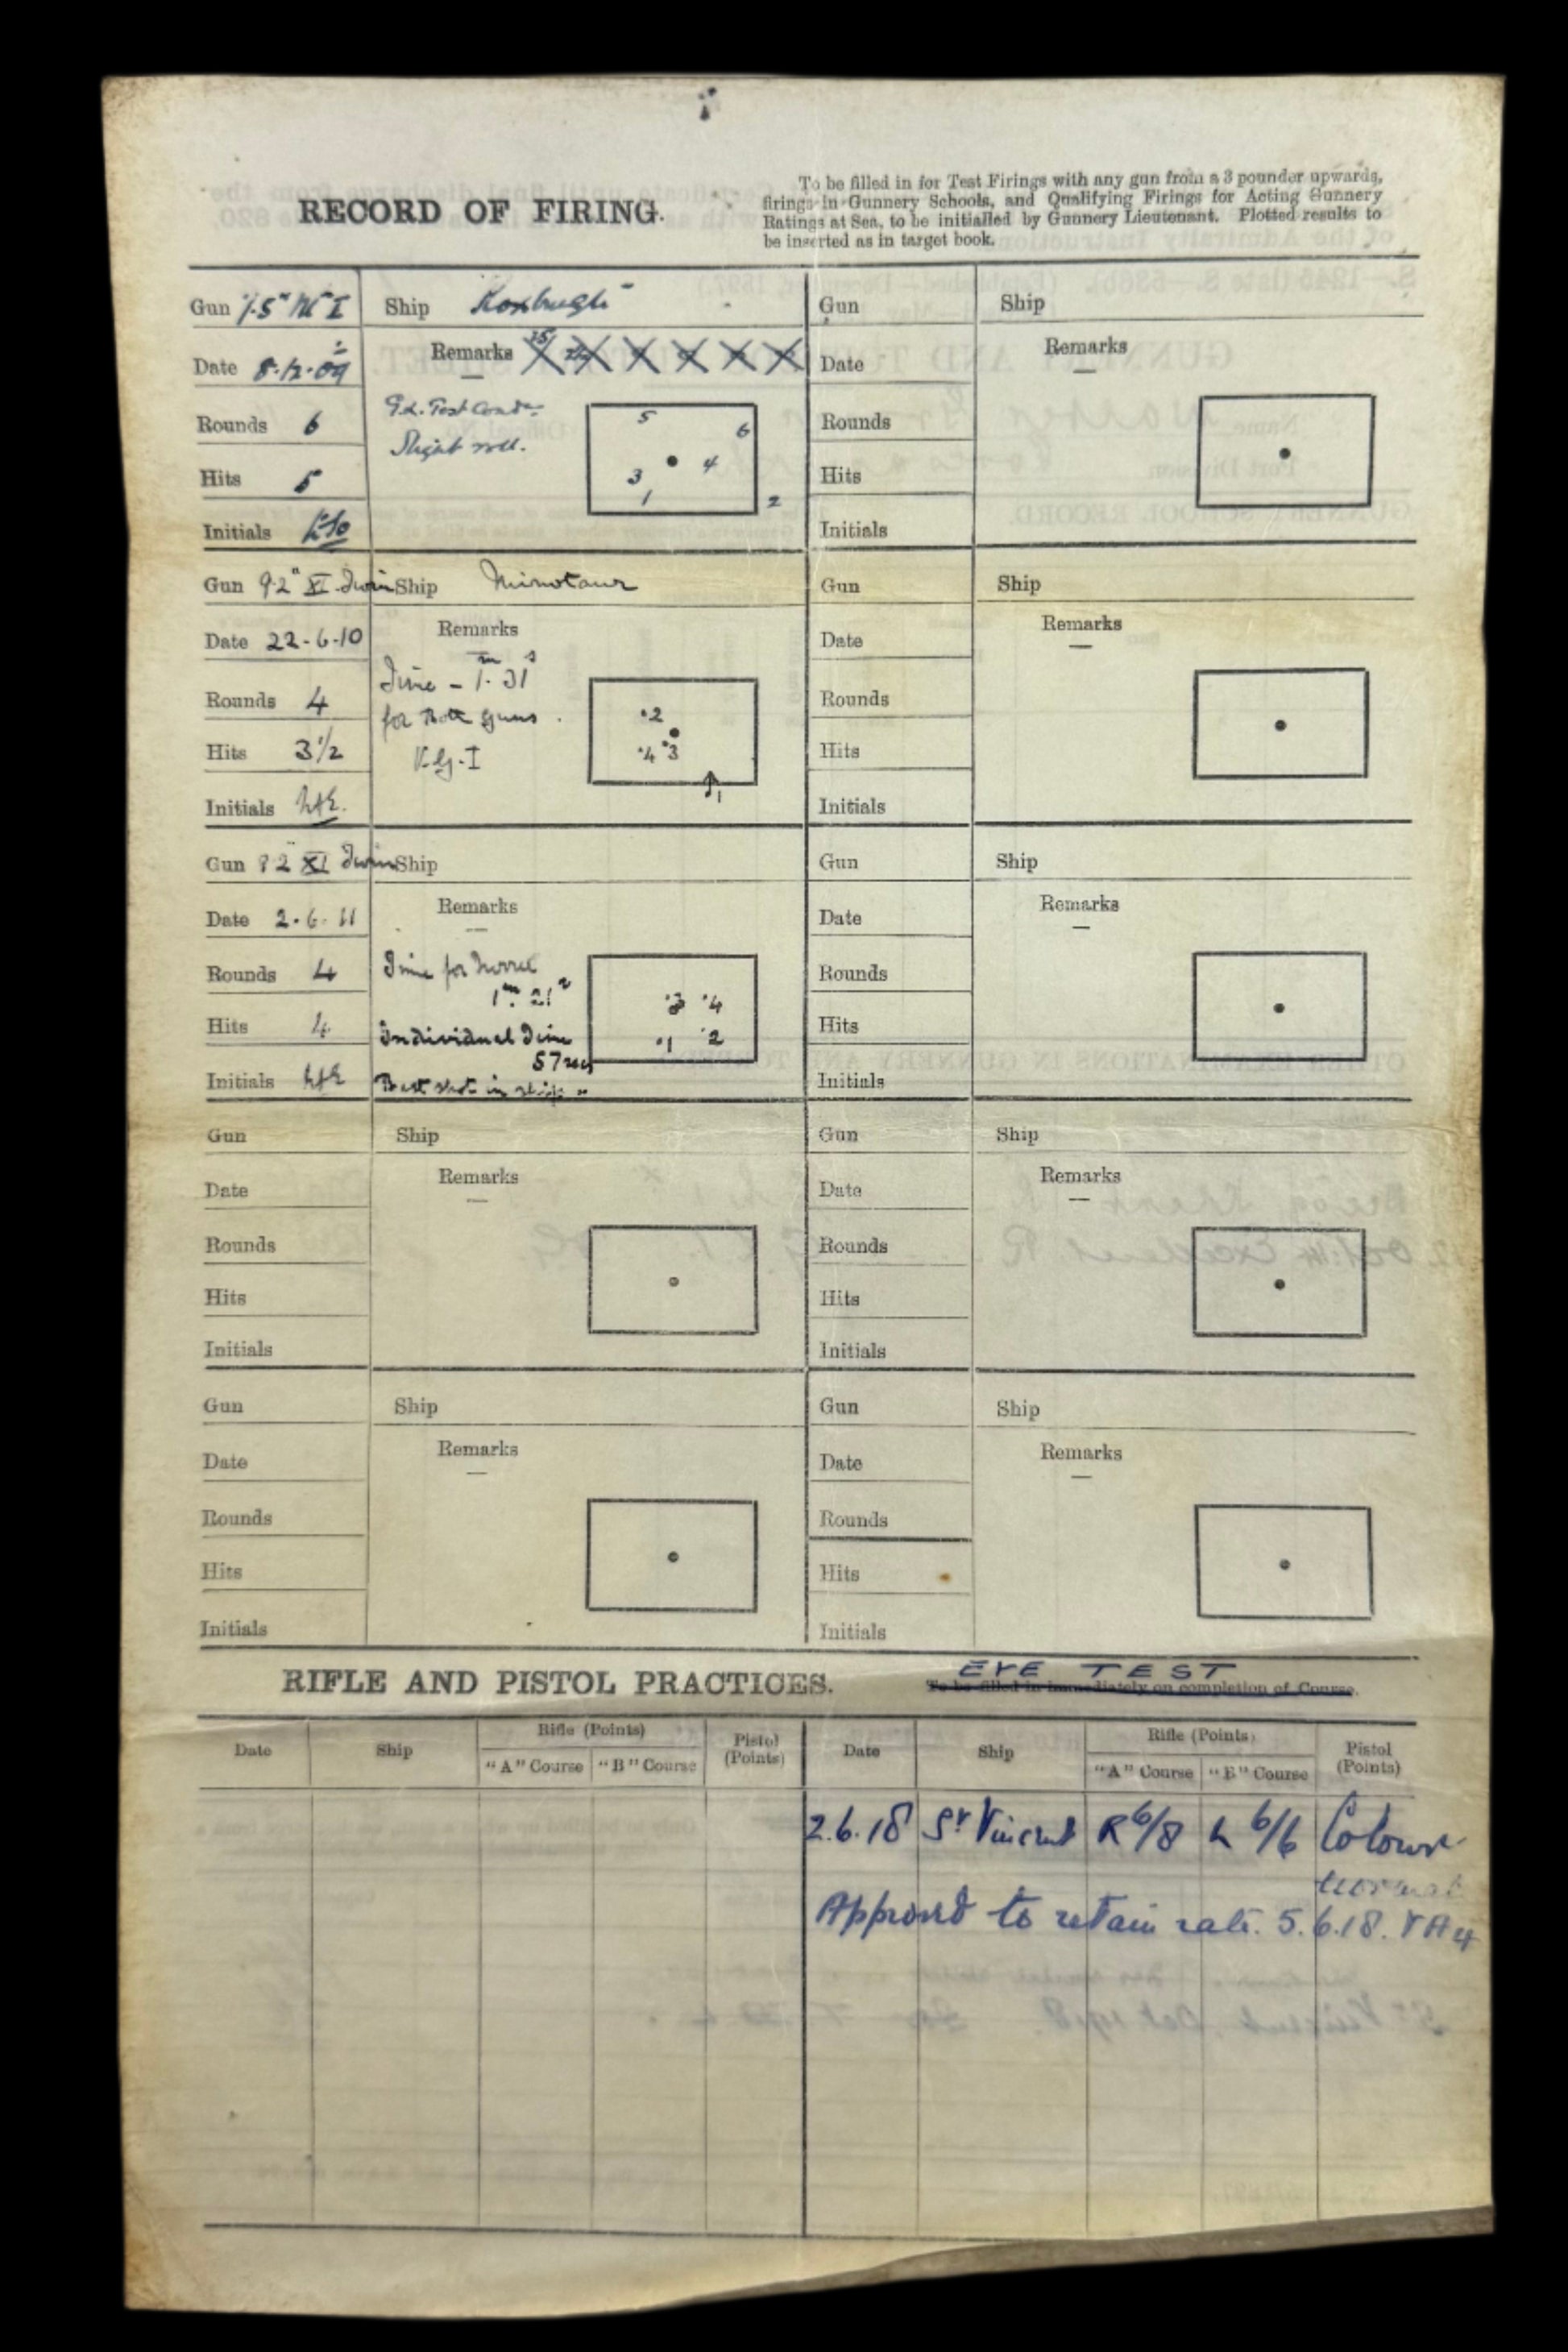 RECORD OF FIRING.
To be filled in for Test Firings with any gun from a 3 pounder upwards,
firings in Gunnery Schools, and Qualifying Firings for Acting Gunnery
Ratings at Sea, to be initialled by Gunnery Lieutenant. Plotted results to
be inserted as in target book.
Gun 7.5" Mk I Ship Roxburgh
Date 8.12.09 Remarks
Rounds 6
Slight roll.
Hits 5
Initials
5
6
3 4
1 2
Gun Ship
Date Remarks
Rounds
Hits
Initials
Gun 9.2" XI Twin Ship Minotaur
Date 22-6-10 Remarks
Time - 1m 31s
Rounds 4 for Both guns.
Hits 3½
Initials
2
4 3
1
Gun Ship
Date Remarks
Rounds
Hits
Initials
Gun 9.2 XI Twin Ship
Date 2.6.11 Remarks
Rounds 4 Time for
1m 21s
Hits 4 Individual Time
57 secs
Initials Best shot in ship
3 4
1 2
Gun Ship
Date Remarks
Rounds
Hits
Initials
Gun Ship
Date Remarks
Rounds
Hits
Initials
Gun Ship
Date Remarks
Rounds
Hits
Initials
Gun Ship
Date Remarks
Rounds
Hits
Initials
Gun Ship
Date Remarks
Rounds
Hits
Initials
RIFLE AND PISTOL PRACTICES. EYE TEST
To be filled in immediately on completion of Course.
Date Ship Rifle (Points) Pistol (Points) Date Ship Rifle (Points) Pistol (Points)
"A" Course "B" Course "A" Course "B" Course
2.6.18 St Vincent R 6/8 L 6/6 Colour
normal
Approved to retain rate. 5.6.18.